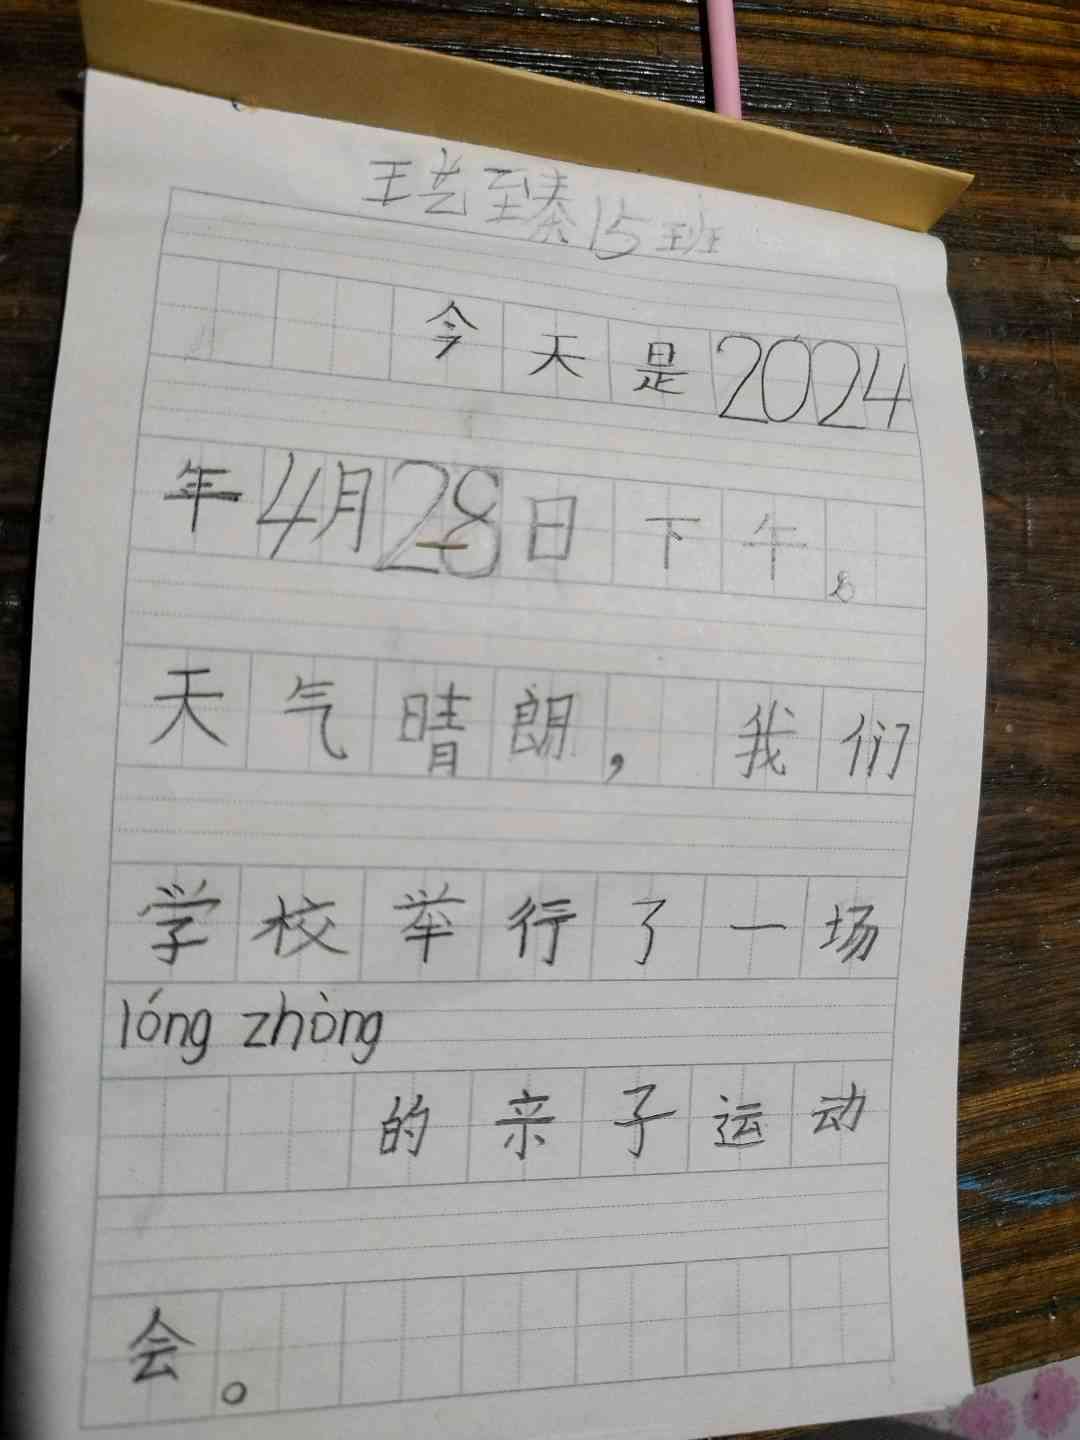 王艺臻15班
今天是2024
年4月28日下午。
天气晴朗，我们
学校举行了一场
lóng zhòng
的亲子运动
会。